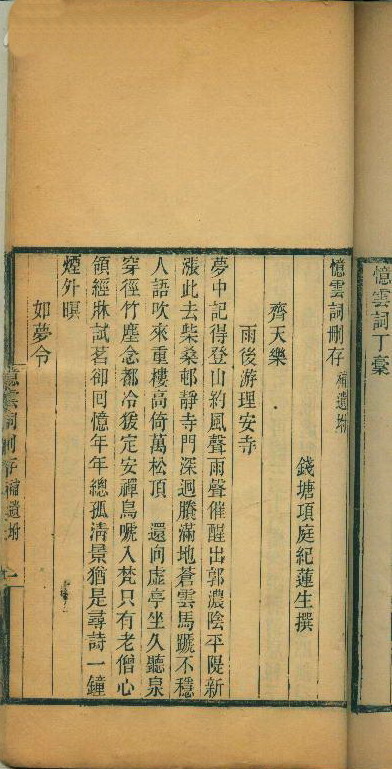 憶雲詞丁藁
憶雲詞刪存 補遺坿
錢塘項庭紀蓮生撰
齊天樂
雨後游理安寺
夢中記得登山約風聲雨聲催醒出郭濃陰平隄新
漲此去柴桑邨靜寺門深迥賸滿地蒼雲馬蹏不穩
人語吹來重樓高倚萬松頂 還向虛亭坐久聽泉
穿徑竹塵念都冷猨定安禪鳥嗁入梵只有老僧心
領經牀試茗卻回憶年年總孤淸景猶是尋詩一鐘
煙外暝
如夢令
憶雲詞刪存補遺坿 一